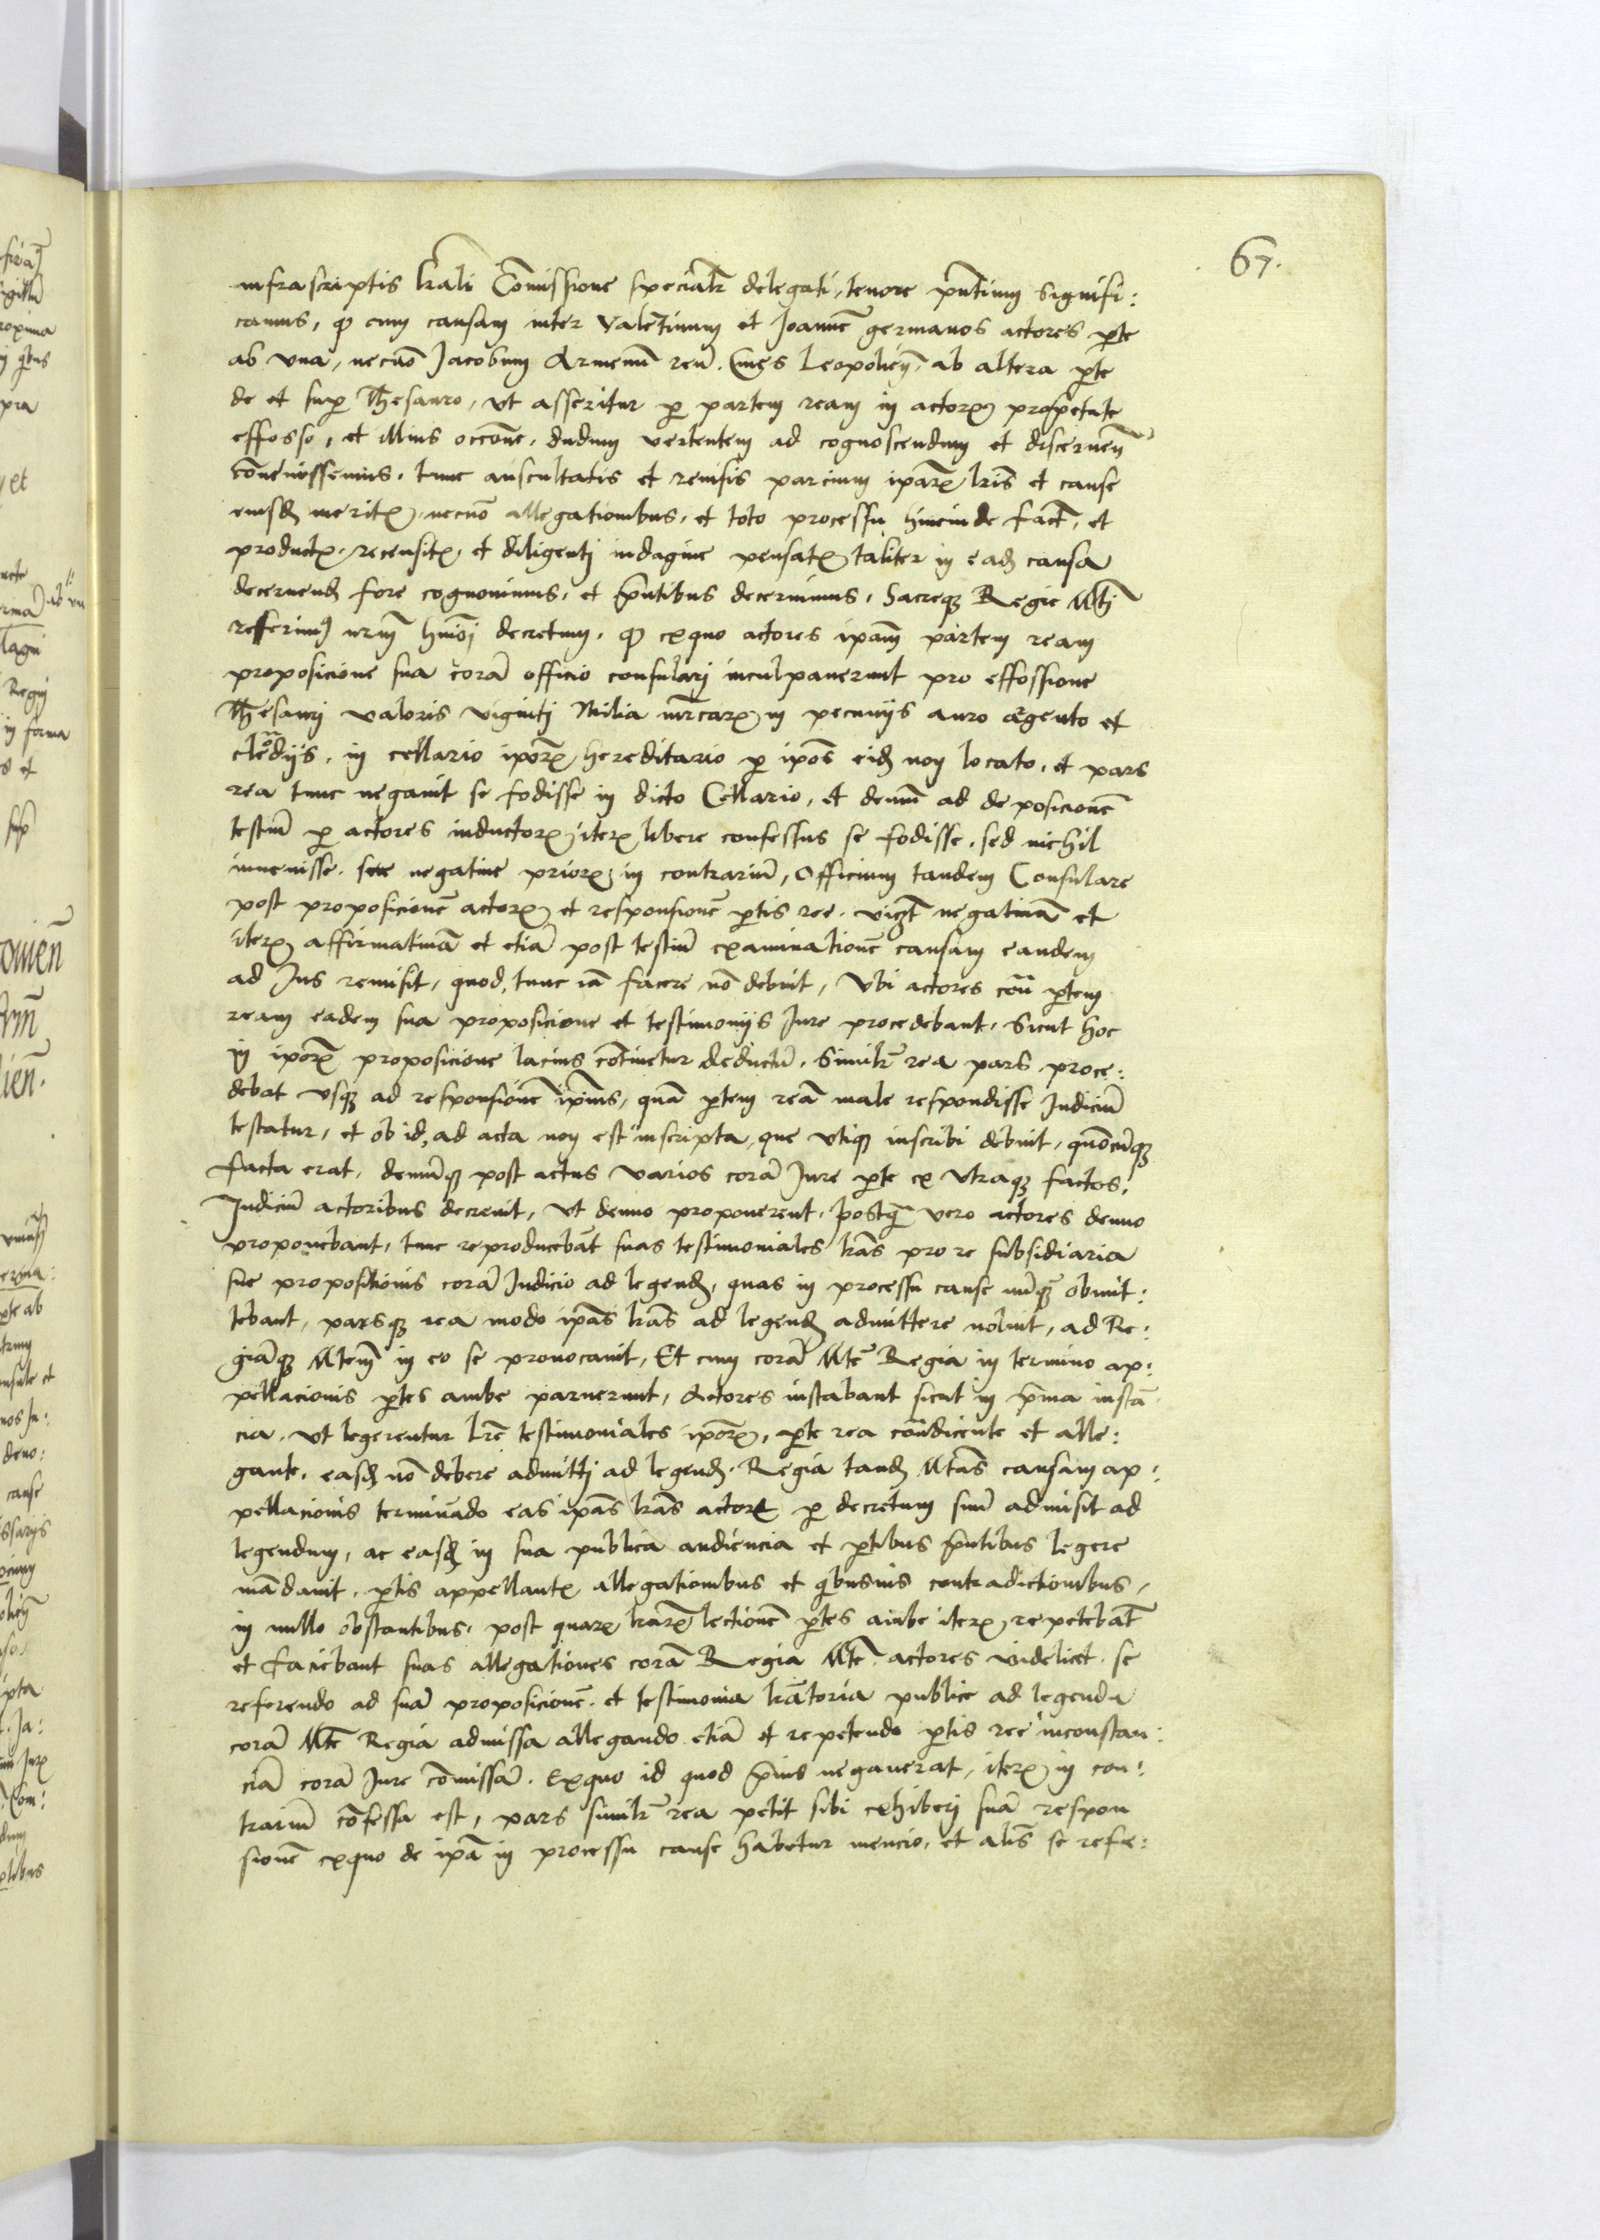 67.
infrascriptis l̃rali Com̃issione speciali͂r delegati, tenore pn̄tium signifi:
camus, q̃ cum causam inter Valētinum et Joannē germanos actores p̱te
ab vna, necnō Jacobum Armenū reū. Ciues Leopolień. ab altera p̱te
de et sup̱ Thesauro, vt asseritur p̱ partem ream in actorꝝ prop̱etate
effosso, et illius occōne, dudum vertentem ad cognoscendum et discernen̄
Conuenissemus. tunc auscultatis et reuisis parcium ip̄arꝝ l̃ris et cause
eiusdꝫ meritꝭ. necnō allegationibus, et toto processu hincinde factꝭ, et
productꝭ, recensitꝭ, et diligenti indagine pensatꝭ taliter in eadꝫ causa
decernendꝫ fore cognouimus, et pn̄tibus decernimus, Sacreqꝫ Regie Mt̄i
referimꝰ nrm̄ hmōi decretum. q̃ exquo actores ip̄am partem ream
proposicione sua corā officio consulari inculpauerunt pro effossione
Thesauri valoris viginti Milia mr̄carꝝ in pecunijs auro argento et
clenodijs, in cellario ip̄orꝝ hereditario p̱ ip̄os eidꝫ non locato, et pars
rea tunc negauit se fodisse in dicto Cellario, et demū ad deposicionē
testiū p̱ actores inductorꝝ iterꝫ libere confessus se fodisse, sed nichil
inuenisse. sue negatiue priorꝭ in contrariū, Officium tandem Consulare
post proposicionē actorꝝ et responsionē p̱tis ree. viꝫt negatiuā et
iterꝫ affirmatiuā et etiā post testiū examinationē causam eandem
ad Jus remisit, quod tunc iā facere nō debuit, Vbi actores con̄ p̱tem
ream eadem sua proposicione et testimonijs Jure procedebant. Sicut hoc
in ip̄orꝝ proposicione lacius cōtinetur deductū. Simili͂r rea pars proce:
debat vsqꝫ ad responsionē ip̄ius, quā p̱tem reā male respondisse Judiciū
testatur, et ob id, ad acta non est inscripta, que vtiqꝫ inscribi debuit, quōcūqꝫ
facta erat, demūqꝫ post actus varios corā Jure p̱te ex vtraqꝫ factos,
Judiciū actoribus decreuit, vt denuo proponerent, postq̃ vero actores denuo
proponebant, tunc reproducebāt suas testimoniales l̃ras pro re subsidiaria
sue propositionis corā Judicio ad legendꝫ, quas in processu cause nūqꝫ obmit:
tebant, parsqꝫ rea modo ip̄as l̃ras ad legendꝫ admittere noluit, ad Re:
giāqꝫ Mtem̄ in eo se prouocauit, Et cum corā Mt̄e Regia in termino ap:
pellacionis p̱tes ambe paruerunt, Actores instabant sicut in p̄ma instā
cia, vt legerentur l̃re testimoniales ip̄orꝝ, p̱te rea con̄dicente et alle:
gante, easdꝫ nō debere admitti ad legendꝫ. Regia tandꝫ Mt̄as causam ap:
pellacionis terminādo eas ip̄as l̃ras actorꝝ p̱ decretum suū admisit ad
legendum, ac easdꝫ in sua publica audiencia et p̱tibus pn̄tibus legere
mādauit. p̱tis appellantꝭ allegationibus et qͥbusuis contradictionibus,
in nullo obstantibus, post quarꝝ l̃rarꝝ lectionē p̱tes ambe iterꝫ repetebāt
et faciebant suas allegationes corā Regia Mt̄e. actores videlicet se
referendo ad suā proposicionē. et testimonia l̃ratoria publice ad legendū
corā Mt̄e Regia admissa allegando etiā et repetendo p̱tis ree inconstan:
ciā corā Jure cōmissā. Exquo id quod p̄us negauerat, iterꝫ in con:
trariū cōfessa est, pars simili͂r rea petit sibi exhiberi suā respon
sionē exquo de ip̄a in processu cause habetur mencio, et alīs se refe: